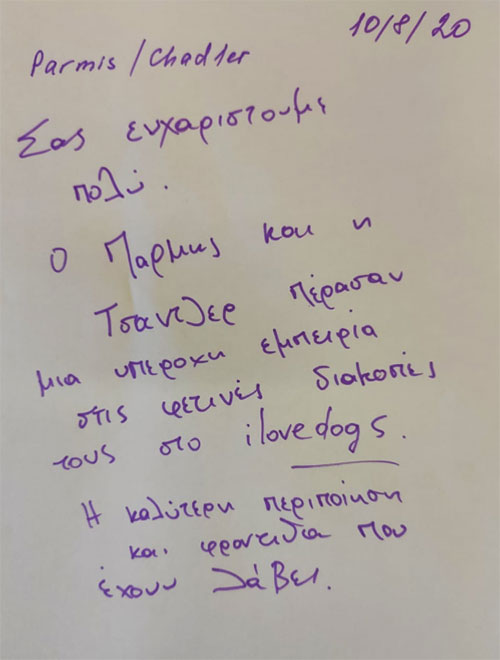 10/8/20
Parmis/Chadler
Σας ευχαριστουμε
πολύ.
Ο Παρμις και η
Τσαντλερ πέρασαν
μια υπεροχη εμπειρία
στις φετινές διακοπές
τους στο ilovedogs.
Η καλύτερη περιποίηση
και φροντιδα που
έχουν λάβει.